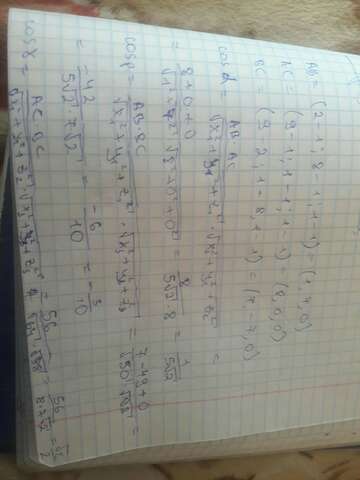 AB = (2-1; 8-1; 1-1) = (1,7,0)
AC = (9-1; 1-1; 1-1) = (8,0,0)
BC = (9-2; 1-8; 1-1) = (7,-7,0)
cos α = AB·AC / √x₁²+y₁²+z₁² · √x₂²+y₂²+z₂² =
= 8+0+0 / √1²+7² · √8²+0²+0² = 8 / 5√2·8 = 1 / 5√2
cos β = AB·BC / √x₁²+y₁²+z₁² · √x₂²+y₂²+z₂² = 7-49+0 / √50·√98 =
= -42 / 5√2·7√2 = -6 / 10 = -3 / 10
cos γ = AC·BC / √x₁²+y₁²+z₁² · √x₂²+y₂²+z₂² = 56 / = 56 / 8·7√2 = √2 / 2